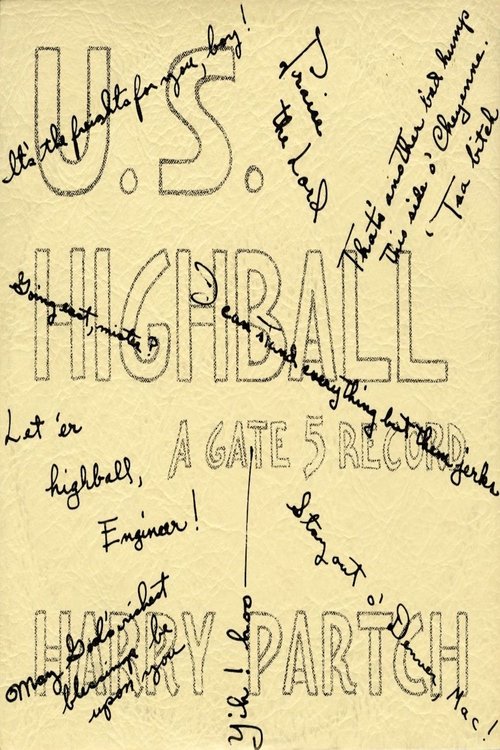 U.S.
It's the freights for you, boy!
Praise
the Lord
That's another bad hump
this side o' Cheyenne.
'Tsa bitch
HIGHBALL
Going east, mister?
I can stand everything but them jerks
A GATE 5 RECORD
Let 'er
highball,
Engineer!
Stay out o' Denver, Mac!
Yih! hoo
HARRY PARTCH
May God's richest
blessings be
upon you